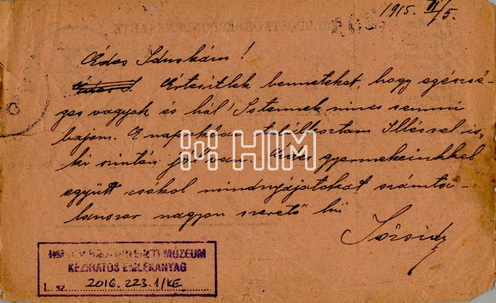 1915. II/5.
Édes Iduskám!
Értesitlek benneteket, hogy egészsé-
ges vagyok és hál' Istennek nincs semmi
bajom. E napokban találkoztam Illéssel is,
ki szintén jól van.
gyermekeinkkel
együtt csókol mindnyájatokat számta-
lanszor nagyon szerető
HIM
MÚZEUM
KÉZIRATOS EMLÉKANYAG
L. sz. 2016.223.1/KE